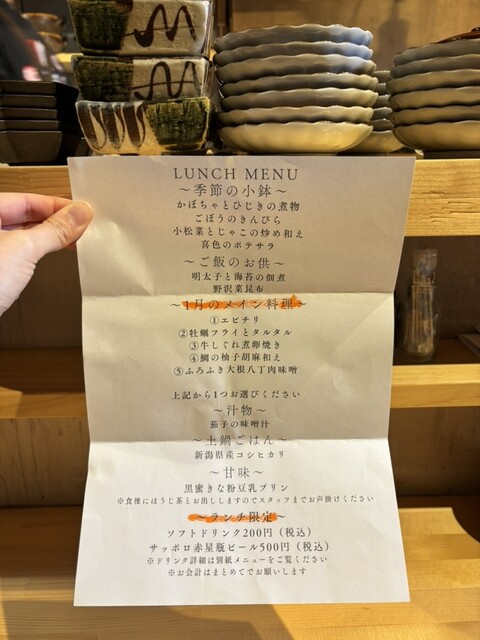 LUNCH MENU
〜季節の小鉢〜
かぼちゃとひじきの煮物
ごぼうのきんぴら
小松菜とじゃこの炒め和え
喜色のポテサラ
〜ご飯のお供〜
明太子と海苔の佃煮
野沢菜昆布
〜1月のメイン料理〜
①エビチリ
②牡蠣フライとタルタル
③牛しぐれ煮卵焼き
④鯛の柚子胡麻和え
⑤ふろふき大根八丁肉味噌
上記から1つお選びください
〜汁物〜
茄子の味噌汁
〜土鍋ごはん〜
新潟県産コシヒカリ
〜甘味〜
黒蜜きな粉豆乳プリン
※食後にほうじ茶とお出ししますのでスタッフまでお声掛けください
〜ランチ限定〜
ソフトドリンク200円（税込）
サッポロ赤星瓶ビール500円（税込）
※ドリンク詳細は別紙メニューをご覧ください
※お会計はまとめてでお願いします